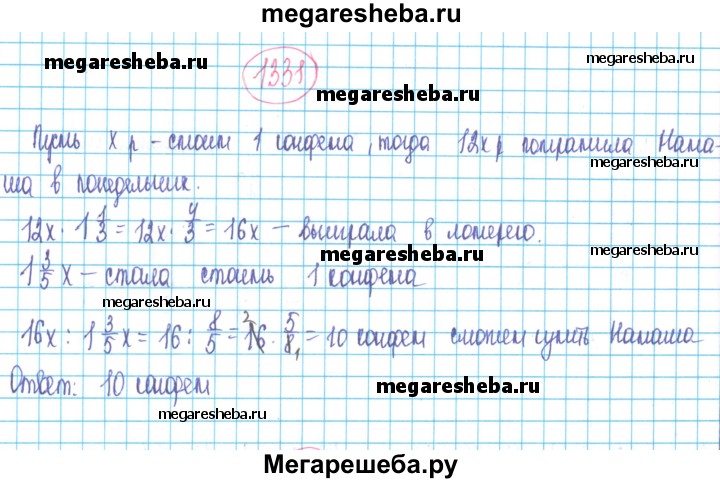 megaresheba.ru
megaresheba.ru
megaresheba.ru
1331
megaresheba.ru
Пусть x р - стоит 1 конфета, тогда 12x р потратила Ната-
megaresheba.ru
ша в понедельник.
12x · 1 1/3 = 12x · 4/3 = 16x – выиграла в лотерею.
megaresheba.ru
1 3/5 x – стала стоить 1 конфета
megaresheba.ru
megaresheba.ru
16x : 1 3/5 x = 16 : 8/5 = 16 2 · 5/8 1 = 10 конфет сможет купить Наташа
Ответ: 10 конфет
megaresheba.ru
megaresheba.ru
megaresheba.ru
Мегарешеба.ру